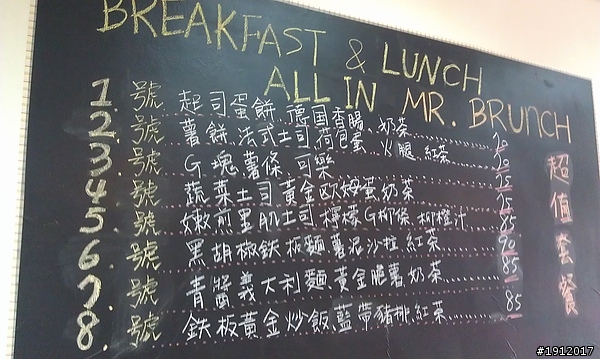 BREAKFAST & LUNCH
ALL IN MR. BRUNCH
1. 號 起司蛋餅、德国香腸、奶茶........70
2. 號 薯餅、法式土司、荷包蛋、火腿、紅茶........70
3. 號 G塊薯條 可樂........75
4. 號 蔬菜土司黃金歐姆蛋奶茶........75
5. 號 嫩煎里肌土司檸檬G柳條柳橙汁 85
6. 號 黑胡椒鉄板麵薯泥沙拉紅茶........90
7. 號 青醬義大利麵黃金脆薯奶茶........85
8. 號 鉄板黃金炒飯藍帶豬排紅茶........85
超值套餐
#1912017